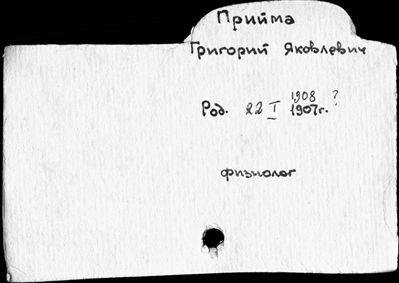 Прийма
Григорий Яковлевич
1908 ?
Род. 22 I 1907г.
физиолог